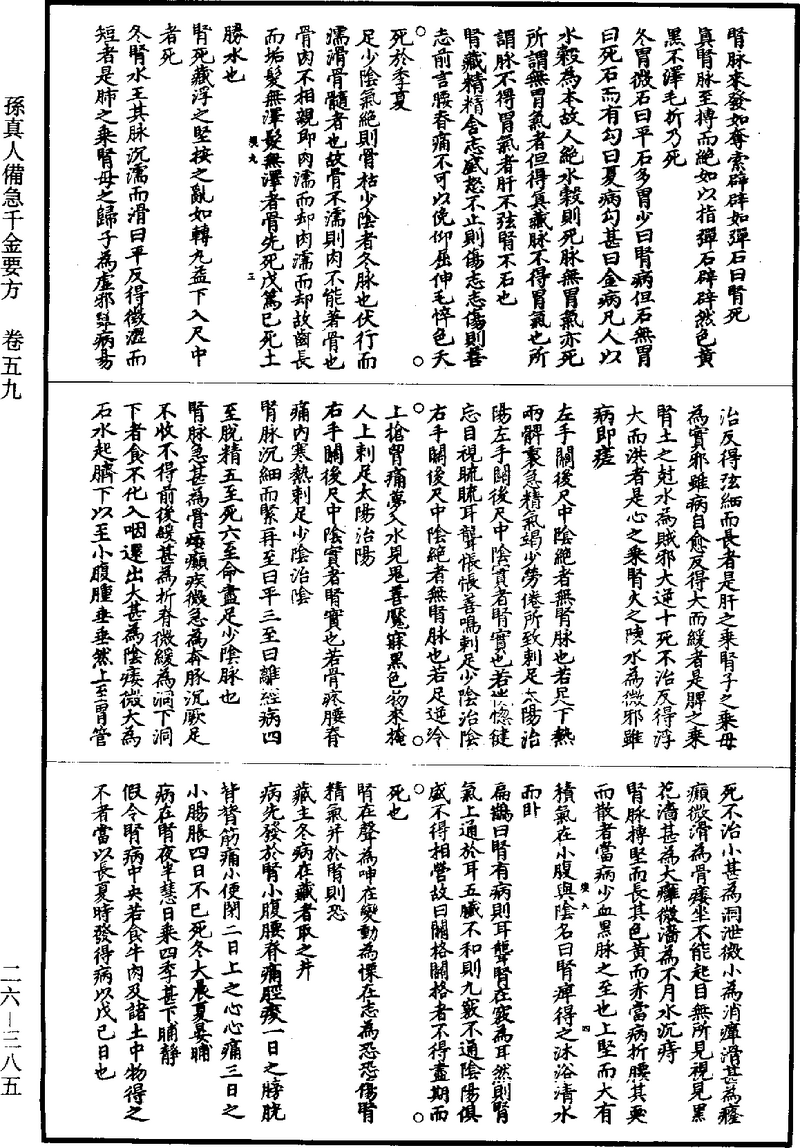 孫真人備急千金要方　卷五九
二六—三八五
腎脈來發如奪索辟辟如彈石曰腎死
真腎脈至搏而絕如以指彈石辟辟然色黃
黑不澤毛折乃死
冬胃微石曰平石多胃少曰腎病但石無胃
曰死石而有勾曰夏病勾甚曰金病凡人以
水穀為本故人絕水穀則死脈無胃氣亦死
所謂無胃氣者但得真藏脈不得胃氣也所
謂脈不得胃氣者肝不弦腎不石也
腎藏精精舍志盛怒不止則傷志志傷則善
忘前言腰脊痛不可以俛仰屈伸毛悴色夭
死於季夏
足少陰氣絕則骨枯少陰者冬脈也伏行而
濡滑骨髓者也故骨不濡則肉不能著骨也
骨肉不相親即肉濡而却肉濡而却故齒長
而垢髮無澤髮無澤者骨先死戊篤己死土
勝水也
腎死藏浮之堅按之亂如轉丸益下入尺中
者死
冬腎水王其脈沉濡而滑曰平反得微澀而
短者是肺之乘腎母之歸子為虛邪雖病易
治反得弦細而長者是肝之乘腎子之乘母
為實邪雖病自愈反得大而緩者是脾之乘
腎土之尅水為賊邪大逆十死不治反得浮
大而洪者是心之乘腎火之陵水為微邪雖
病即瘥
左手關後尺中陰絕者無腎脈也若足下熱
兩髀裏急精氣竭少勞倦所致刺足太陽治
陽左手關後尺中陰實者腎實也若恍惚健
忘目視䀮䀮耳聾悵悵善鳴刺足少陰治陰
右手關後尺中陰絕者無腎脈也若足逆冷
上搶胷痛夢入水見鬼善魘寐黑色物來掩
人上刺足太陽治陽
右手關後尺中陰實者腎實也若骨疼腰脊
痛內寒熱刺足少陰治陰
腎脈沉細而緊再至曰平三至曰離經病四
至脫精五至死六至命盡足少陰脈也
腎脈急甚為骨痿癲疾微急為奔脈沉厥足
不收不得前後緩甚為折脊微緩為洞下洞
下者食不化入咽還出大甚為陰痿微大為
石水起臍下以至小腹腫垂垂然上至胃管
死不治小甚為洞泄微小為消癉滑甚為癃
癲微滑為骨痿坐不能起目無所見視見黑
花濇甚為大癰微濇為不月水沉痔
腎脈搏堅而長其色黃而赤當病折腰其耎
而散者當病少血黑脈之至也上堅而大有
積氣在小腹與陰名曰腎痺得之沐浴清水
而臥
扁鵲曰腎有病則耳聾腎在竅為耳然則腎
氣上通於耳五臟不和則九竅不通陰陽俱
盛不得相營故曰關格關格者不得盡期而
死也
腎在聲為呻在變動為慄在志為恐恐傷腎
精氣并於腎則恐
藏主冬病在藏者取之井
病先發於腎小腹腰脊痛脛痠一日之膀胱
背膂筋痛小便閉二日上之心心痛三日之
小腸脹四日不已死冬大晨夏晏晡
病在腎夜半慧日乘四季甚下晡靜
假令腎病中央若食牛肉及諸土中物得之
不者當以長夏時發得病以戊己日也